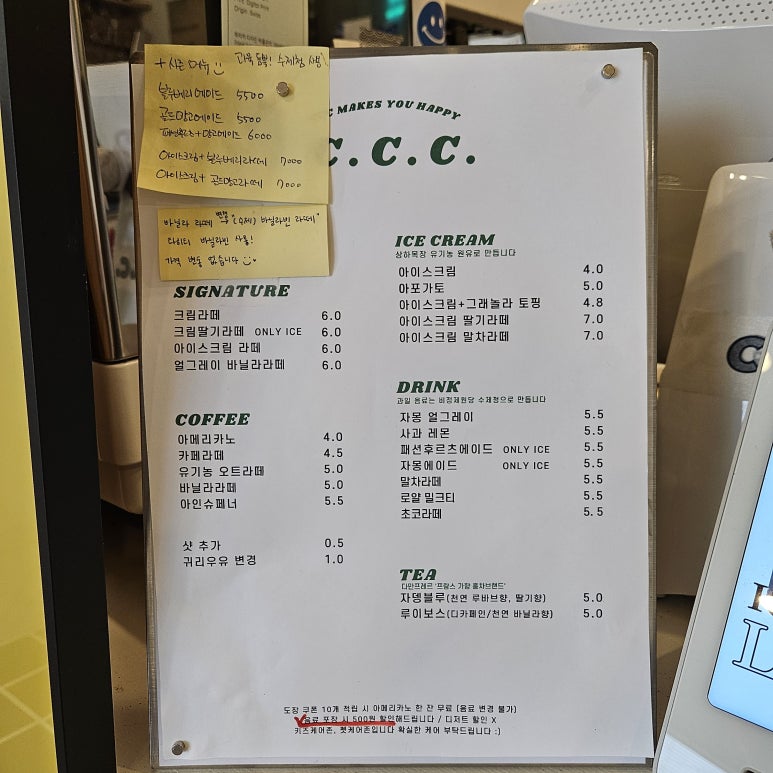 + 시즌 메뉴 과육 듬뿍! 수제청 사용
블루베리에이드 5500
골드망고에이드 5500
패션후르츠+망고에이드 6000
아이스크림+블루베리라떼 7000
아이스크림+ 골드망고라떼 7000
바닐라 라떼 "(수제) 바닐라빈 라떼"
타히티 바닐라빈 사용!
가격 변동 없습니다
C MAKES YOU HAPPY
C.C.C.
SIGNATURE
크림라떼 6.0
크림딸기라떼 ONLY ICE 6.0
아이스크림 라떼 6.0
얼그레이 바닐라라떼 6.0
COFFEE
아메리카노 4.0
카페라떼 4.5
유기농 오트라떼 5.0
바닐라라떼 5.0
아인슈페너 5.5
샷 추가 0.5
귀리우유 변경 1.0
ICE CREAM
상하목장 유기농 원유로 만듭니다
아이스크림 4.0
아포가토 5.0
아이스크림+그래놀라 토핑 4.8
아이스크림 딸기라떼 7.0
아이스크림 말차라떼 7.0
DRINK
과일 음료는 비정제원당 수제청으로 만듭니다
자몽 얼그레이 5.5
사과 레몬 5.5
패션후르츠에이드 ONLY ICE 5.5
자몽에이드 ONLY ICE 5.5
말차라떼 5.5
로얄 밀크티 5.5
초코라떼 5.5
TEA
다만프레르 '프랑스 가향 홍차브랜드'
자뎅블루(천연 루바브향, 딸기향) 5.0
루이보스(디카페인/천연 바닐라향) 5.0
도장 쿠폰 10개 적립 시 아메리카노 한 잔 무료 (음료 변경 불가)
음료 포장 시 500원 할인해드립니다 / 디저트 할인 X
키즈케어존, 펫케어존입니다 확실한 케어 부탁드립니다 :)